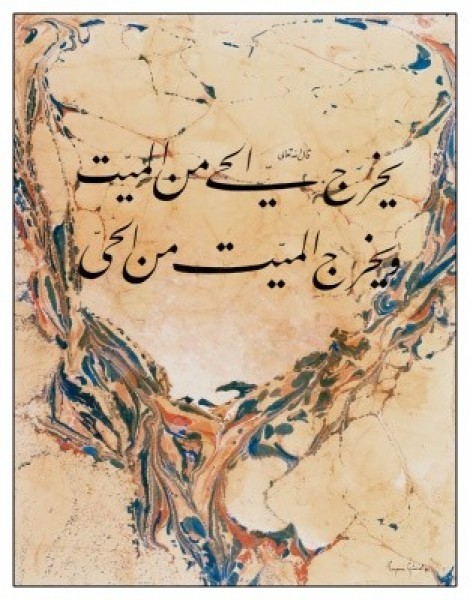 قال الله تعالى
يخرج الحي من الميّت
ويخرج الميّت من الحيّ